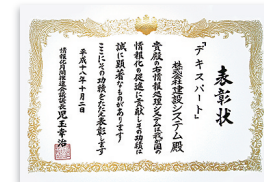 表彰状
「デキスパート」
株式会社建設システム殿
貴殿の右情報処理システムは我国の
情報化の促進に貢献しその功績は
誠に顕著なものがあります
ここにその功績をたたえ表彰します
平成十八年十月二日
情報化月間推進会議議長 児玉幸治